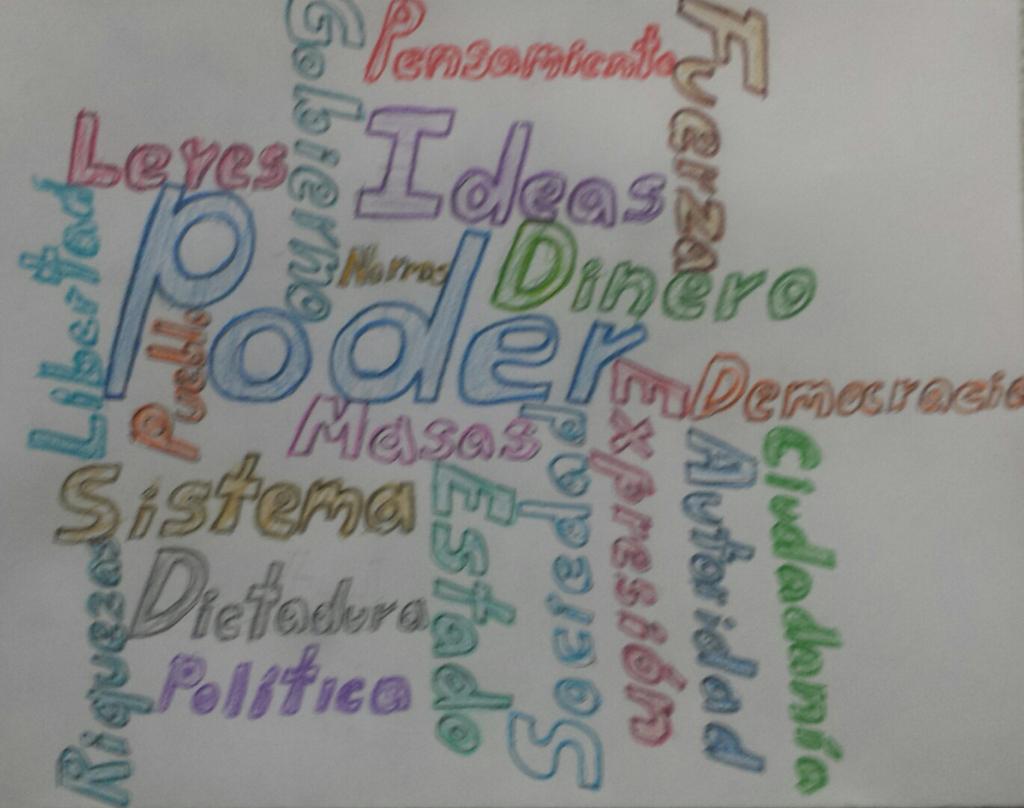 Gobierno
Pensamiento
Fuerza
Leyes
Ideas
Libertad
Poder
Normas
Dinero
Masas
Expresión
Democracia
Sistema
Estado
Sociedad
Autoridad
Ciudadanía
Riquezas
Dictadura
Política